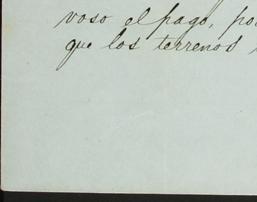 voso el pago, po
que los terrenos